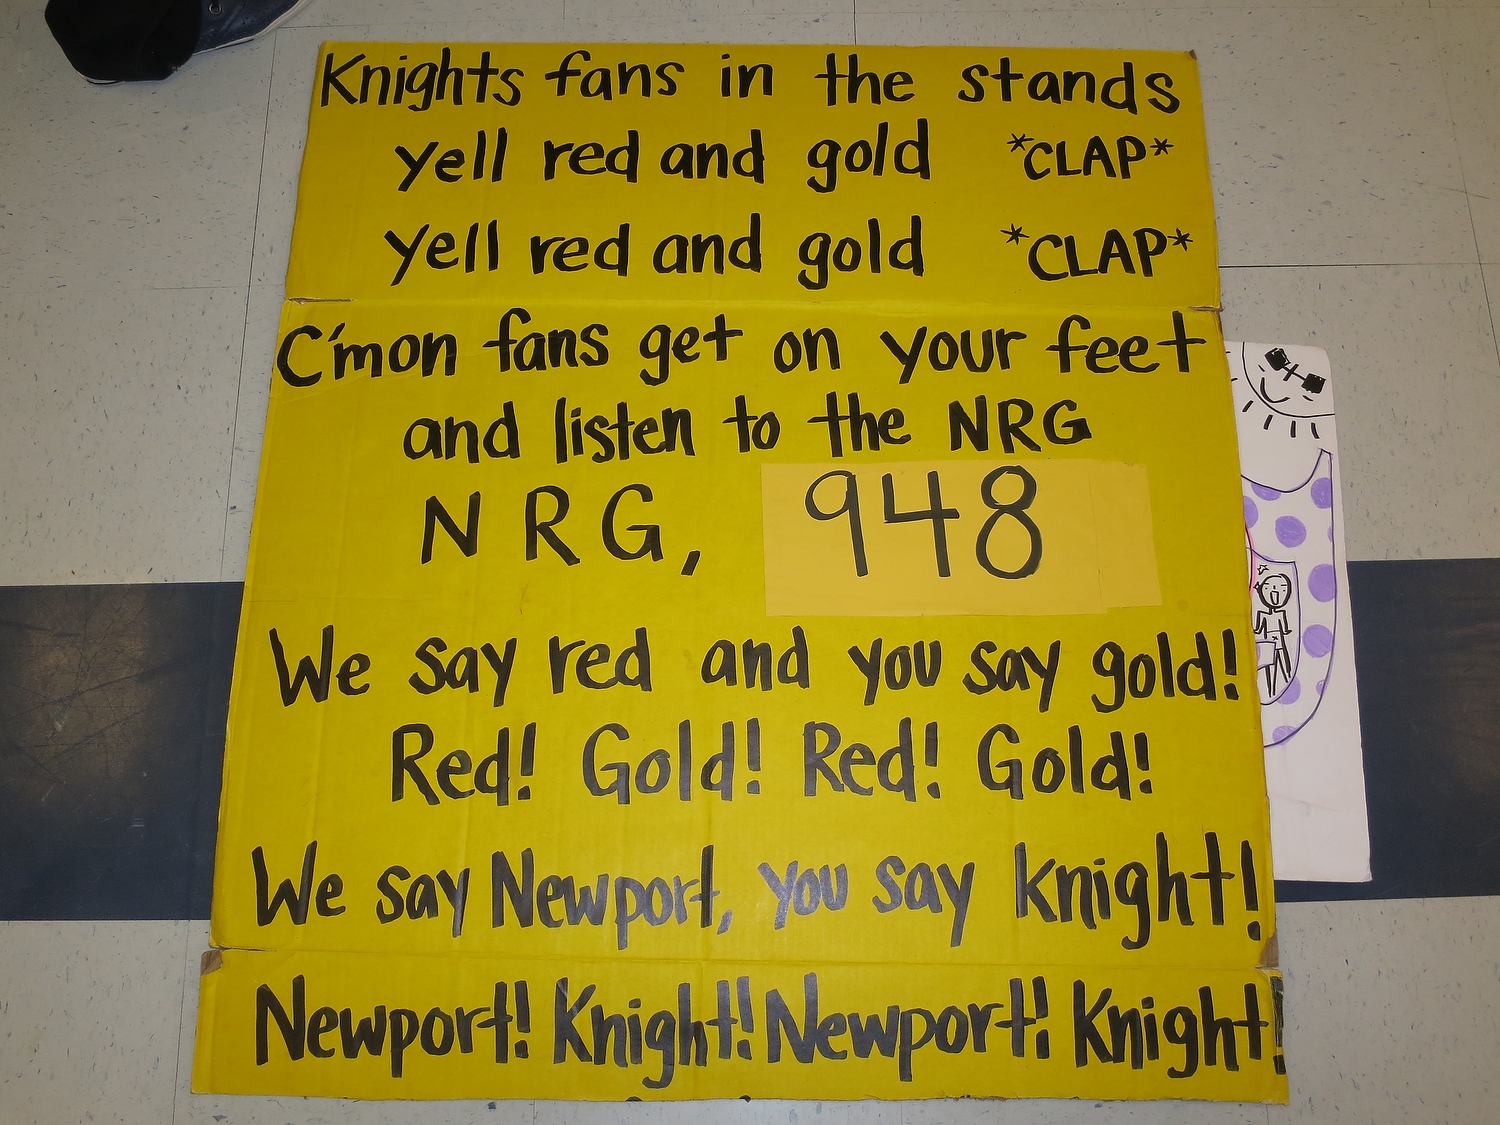 Knights fans in the stands
yell red and gold *CLAP*
yell red and gold *CLAP*
C'mon fans get on your feet
and listen to the NRG
NRG, 948
We say red and you say gold!
Red! Gold! Red! Gold!
We say Newport, you say Knight!
Newport! Knight! Newport! Knight!